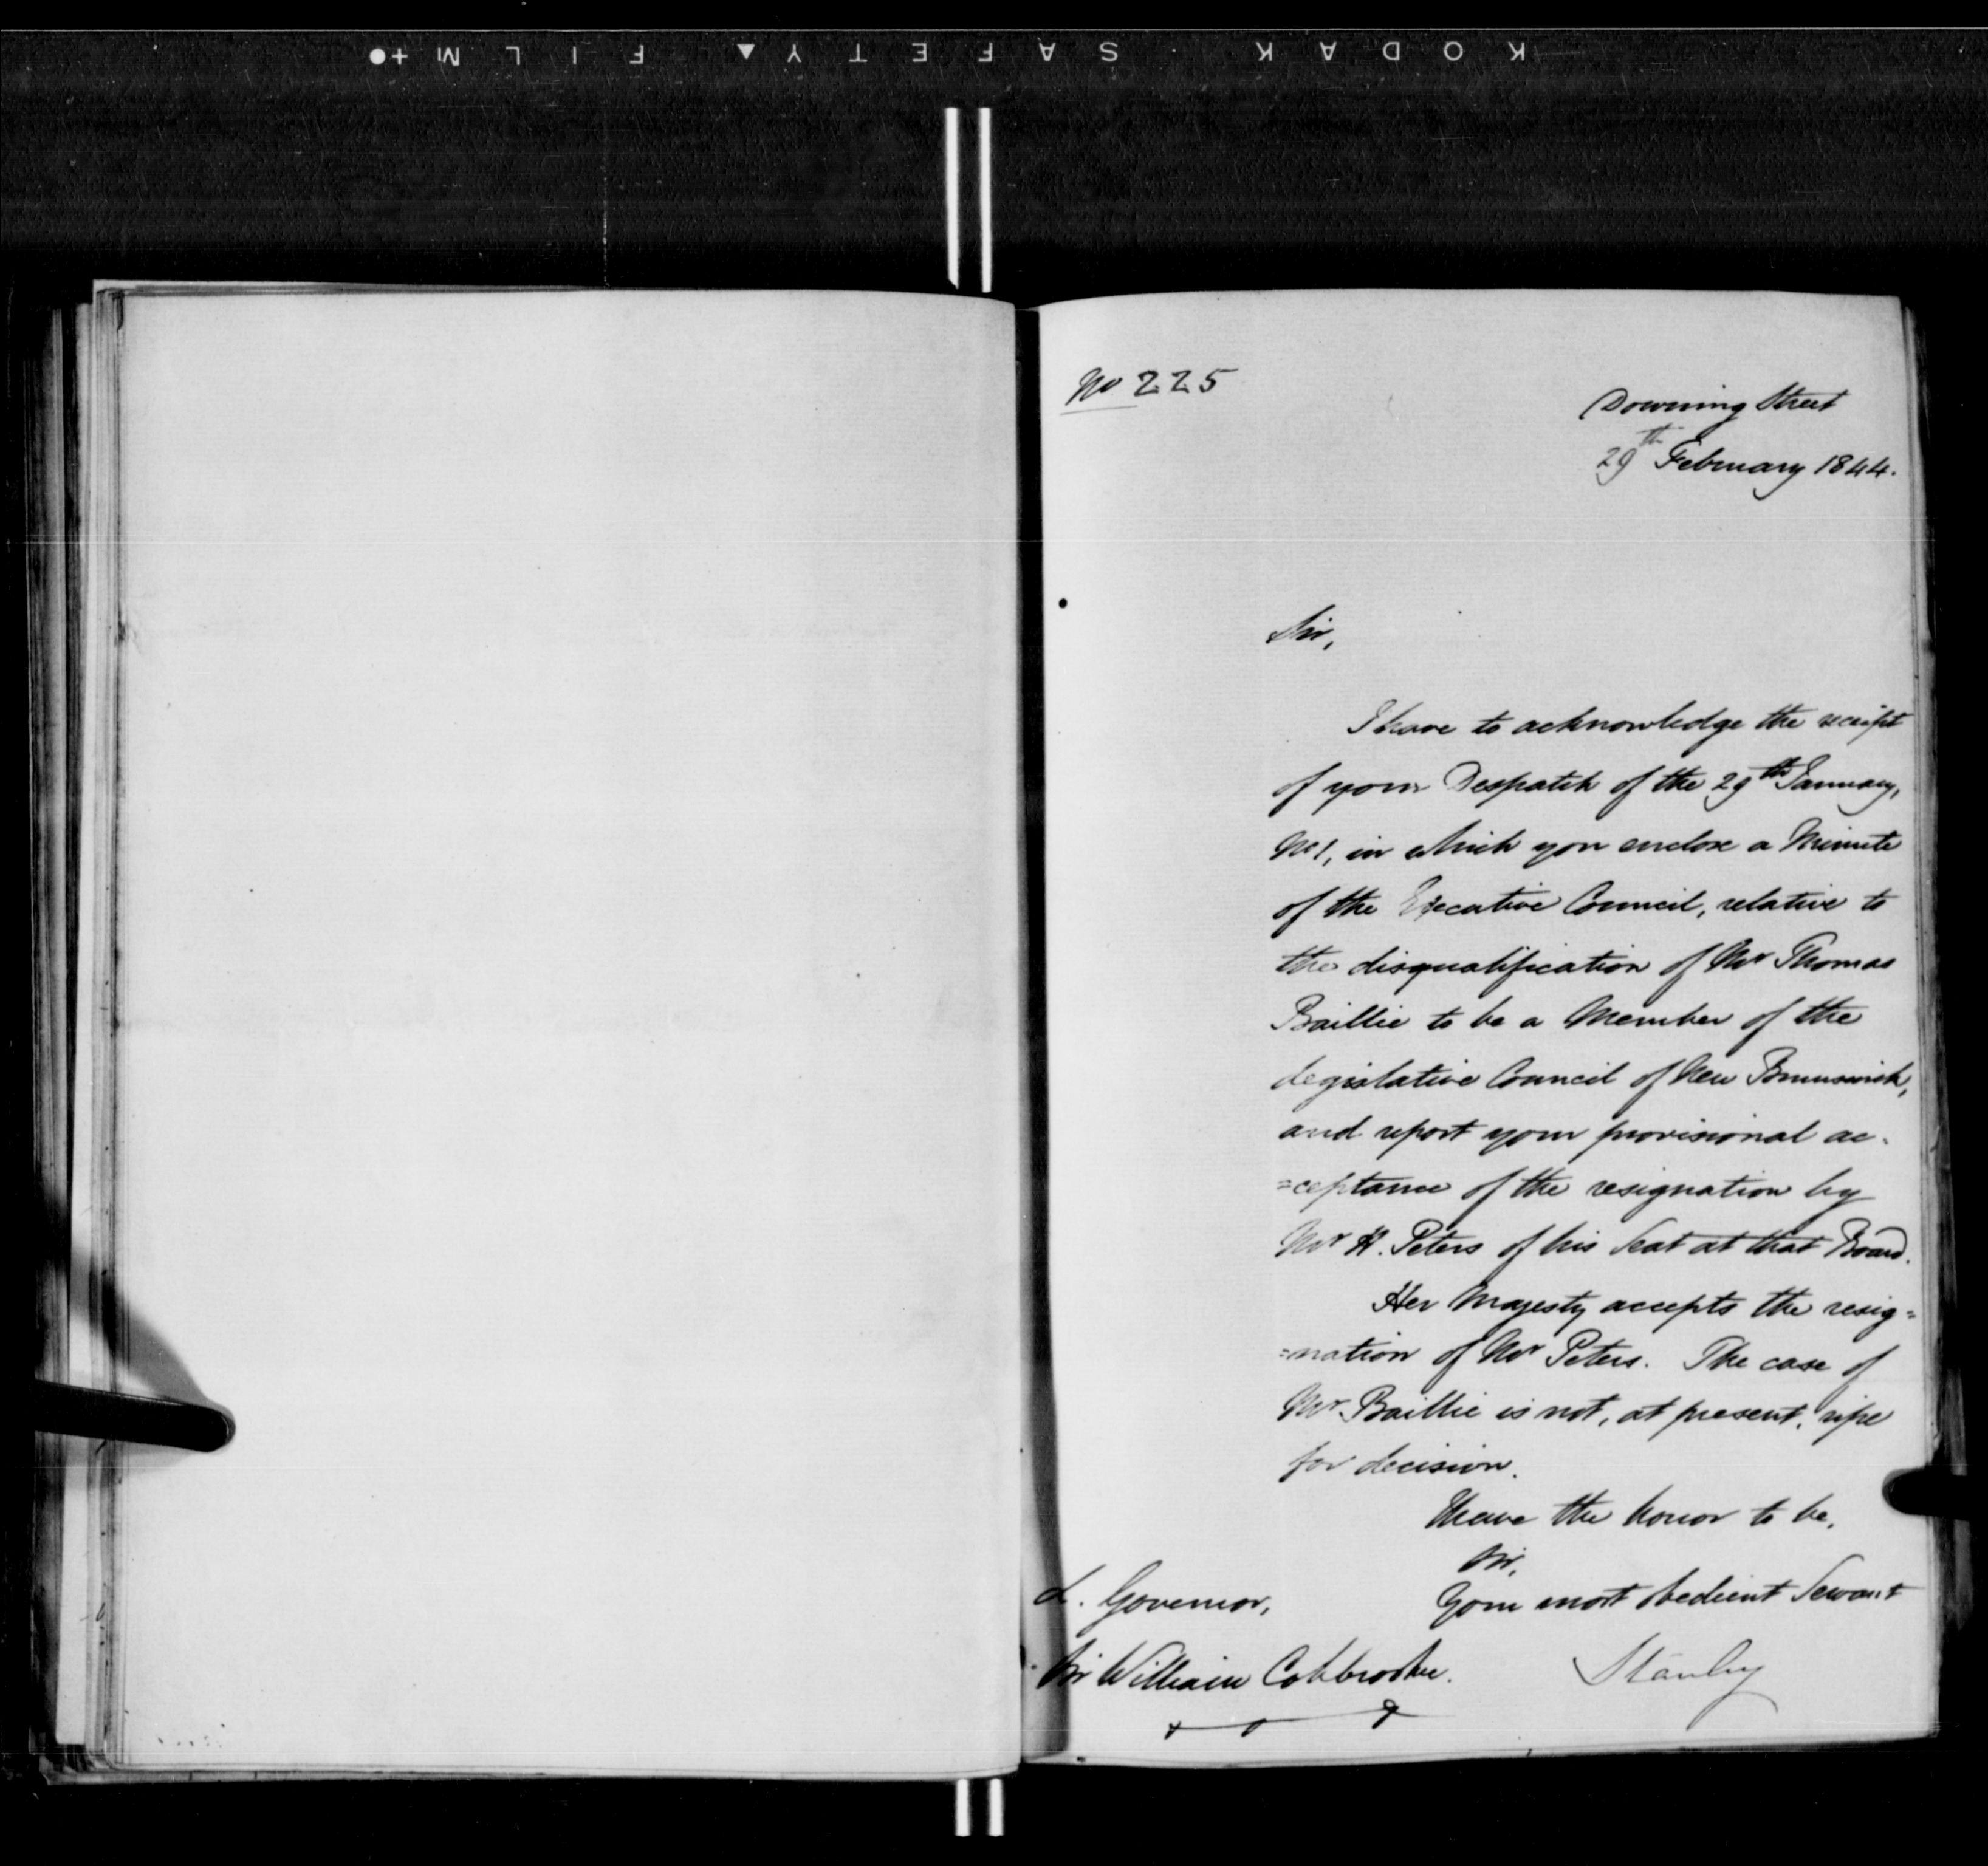 KODAK · SAFETY ▲ FILM +●
No 225
Downing Street
29th February 1844.
Sir,
I have to acknowledge the receipt
of your Despatch of the 29th January,
No 1, in which you enclose a Minute
of the Executive Council, relative to
the disqualification of Mr Thomas
Baillie to be a Member of the
Legislative Council of New Brunswick,
and report your provisional ac-
=ceptance of the resignation by
Mr H. Peters of his Seat at that Board.
Her Majesty accepts the resig=
=nation of Mr Peters. The case of
Mr Baillie is not, at present, ripe
for decision.
I have the honor to be,
Sir,
Your most obedient Servant
Stanley
L. Governor,
Sir William Colebrooke.